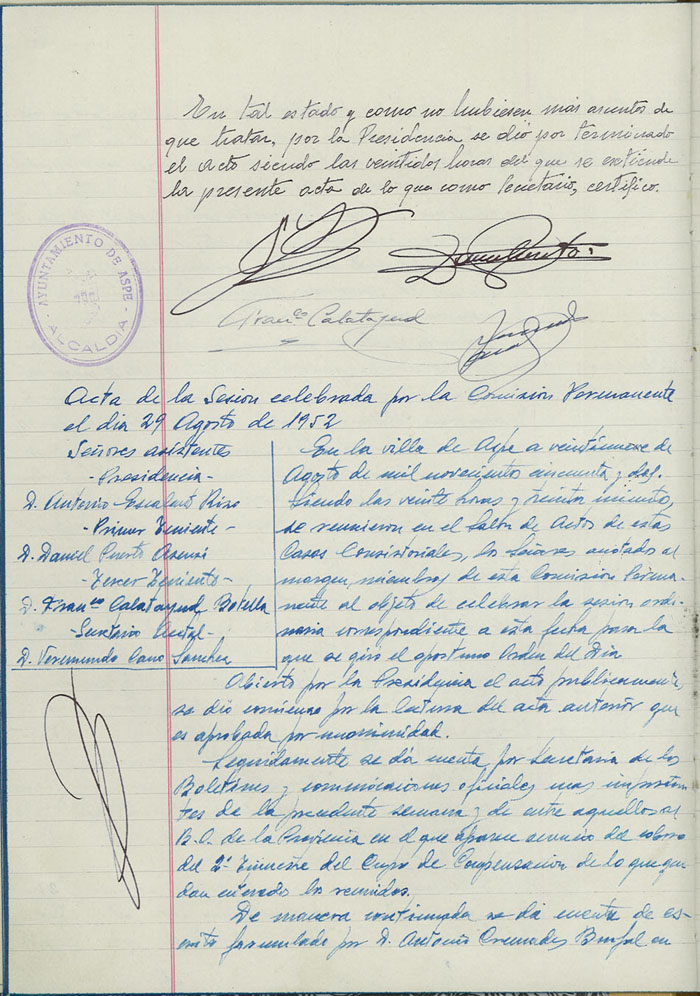 En tal estado y como no hubiesen más asuntos de
que tratar, por la Presidencia se dió por terminado
el acto siendo las veintidos horas del que se extiende
la presente acta de lo que como Secretario, certifico.
AYUNTAMIENTO DE ASPE
ALCALDIA
Franco Calatayud
Acta de la Sesion celebrada por la Comision Permanente
el dia 29 Agosto de 1952
Señores asistentes
- Presidencia -
D. Antonio
- Primer Teniente -
D. Daniel Puerto Asensi
- Tercer Teniente -
D. Franco Calatayud Botella
- Secretario Acctal -
D. Veremundo Cano Sanchez
En la villa de Aspe a veintinueve de
Agosto de mil novecientos cincuenta y dos,
siendo las veinte horas y treinta minutos,
se reunieron en el Salon de Actos de estas
Casas Consistoriales, los Señores anotados al
margen, miembros de esta Comision Perma-
nente al objeto de celebrar la sesion ordi-
naria correspondiente a esta fecha para la
que se giró el oportuno Orden del Dia
Abierto por la Presidencia el acto publicamente,
se dio comienzo por la lectura del acta anterior que
es aprobada por unanimidad.
Seguidamente se dá cuenta por Secretaria de los
Boletines y comunicaciones oficiales mas importan-
tes de la precedente semana y de entre aquellos al
B.O. de la Provincia en el que aparece anuncio del cobro
del 2º Trimestre del Cupo de Compensacion de lo que que-
dan enterados los reunidos.
De manera continuada se dá cuenta de es-
crito formulado por D. Antonio Cremades en